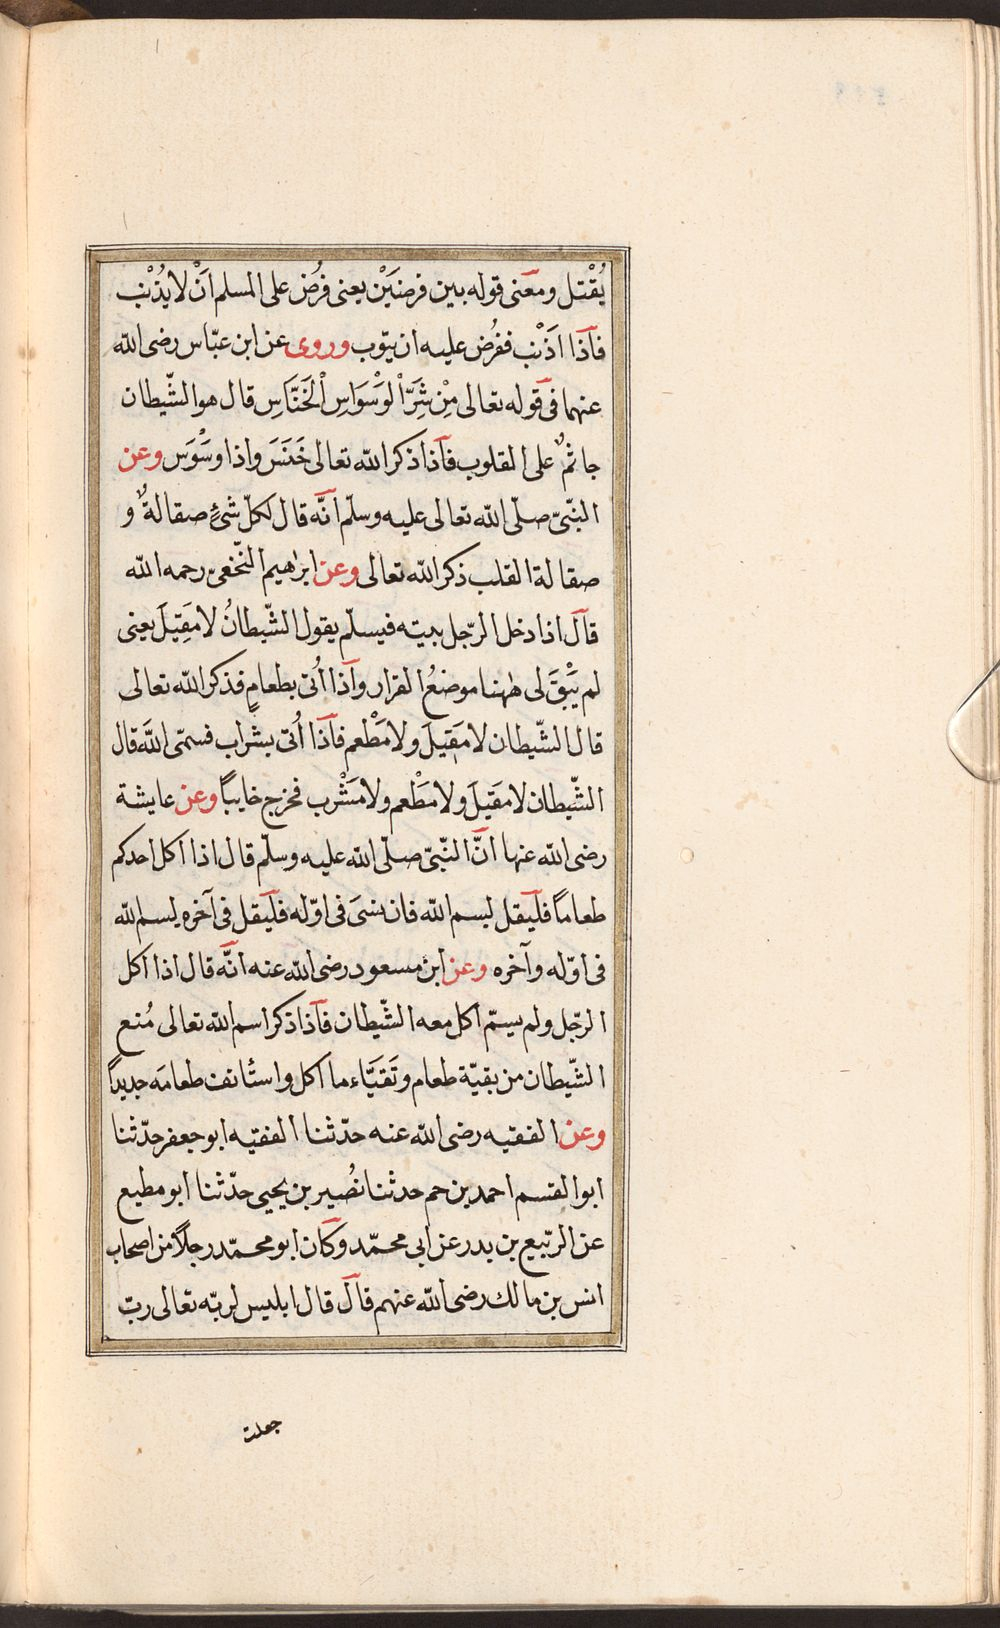 يُقْتل ومعنى قوله بين فرضَيْن يعنى فُرُض على المسلم اَنْ لا يذْنب
فاذا اَذْنب ففُرض عليه ان يتوب وروى عن ابن عبّاس رضى الله
عنهما فى قوله تعالى مِنْ شَرِّ اْلوَسْوَاسِ اْلخَنَّاسِ قال هو الشّيطان
جاثمٌ على القلوب فاذا ذكر الله تعالى خَنَسَ واذا وسْوَس وعن
النّبىّ صلّى الله تعالى عليه وسلّم انّه قال لكلّ شئٍ صقالةٌ و
صقالة القلب ذكر الله تعالى وعن ابرهيم النّخعىّ رحمه الله
قال اذا دخل الرّجل بيته فيسلّم يقول الشّيطانُ لا مَقِيَلَ يعنى
لم يَبْقَ لى ههنا موضعُ القرار واذا اُتى بطعامٍ فذكر الله تعالى
قال الشّيطان لا مَقِيلَ ولا مَطْعم فاذا اُتى بشراب فسمّى اللهَ قال
الشّيطان لا مَقيلَ ولا مَطْعم ولا مَشْرب فخرج خايباً وعن عايشة
رضى الله عنها انّ النّبىّ صلّى الله عليه وسلّم قال اذا اكل احدكم
طعاماً فليقل بسم الله فان نسىَ فى اوّله فليقل فى آخره بسم الله
فى اوّله وآخره وعن ابن مسعود رضى الله عنه انّه قال اذا اكل
الرّجل ولم يسمّ اكل معه الشّيطان فاذا ذكر اسم الله تعالى مُنع
الشّيطان من بقيّة طعام وتَقَيَّاء ما اكل واستأنف طعامَه جديداً
وعن الفقيه رضى الله عنه حدّثنا الفقيه ابو جعفر حدّثنا
ابو القسم احمد بن حم حدثنا نصُير بن يحيى حدّثنا ابو مطيع
عن الرّبيع بن بدر عن ابى محمّد وكان ابو محمّد رجلاً من اصحاب
انس بن مالك رضى الله عنهم قال قال ابليس لربّه تعالى ربّ
جعلت